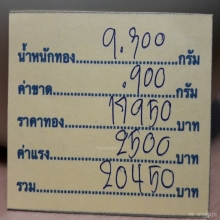 น้ำหนักทอง 9.700 กรัม
ค่าขาด .900 กรัม
ราคาทอง 17950 บาท
ค่าแรง 2500 บาท
รวม 20450 บาท